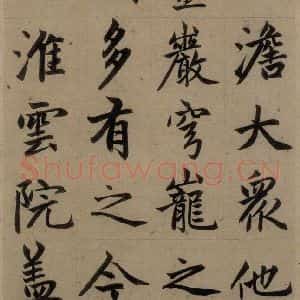 澹大眾他
巖穹巃之
多有之今
淮雲院蓋
Shufawang.CN